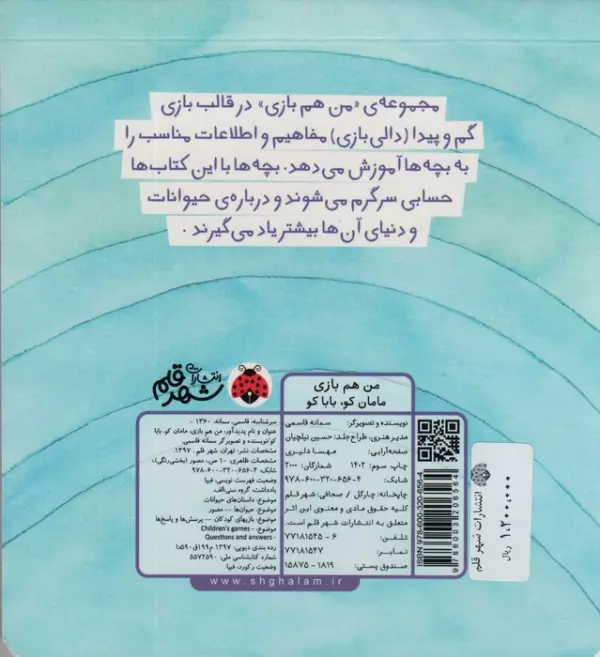 مجموعه‌ی «من هم بازی» در قالب بازی
گم و پیدا (دالی‌بازی) مفاهیم و اطلاعات مناسب را
به بچه‌ها آموزش می‌دهد. بچه‌ها با این کتاب‌ها
حسابی سرگرم می‌شوند و درباره‌ی حیوانات
و دنیای آن‌ها بیشتر یاد می‌گیرند.
انتشارات
شهر قلم
من هم بازی
مامان کو، بابا کو
نویسنده و تصویرگر: سمانه قاسمی
مدیر هنری، طراح جلد: حسین نیلچیان
صفحه‌آرایی: مهسا دلیری
چاپ سوم: ۱۴۰۲ شمارگان: ۲۰۰۰
شابک: ۹۷۸-۶۰۰-۳۲۰-۶۵۶-۴
چاپخانه: چارگل / صحافی: شهر قلم
کلیه حقوق مادی و معنوی این اثر
متعلق به انتشارات شهر قلم است.
تلفن: ۷۷۱۸۱۵۴۵ - ۶
نمابر: ۷۷۱۸۱۵۴۷
صندوق پستی: ۱۵۸۷۵ - ۱۸۱۹
سرشناسه: قاسمی، سمانه، ۱۳۶۰ -
عنوان و نام پدیدآور: من هم بازی، مامان کو، بابا
کو/نویسنده و تصویرگر سمانه قاسمی.
مشخصات نشر: تهران: شهر قلم، ۱۳۹۷.
مشخصات ظاهری: ۱۰ ص. مصور (بخشی رنگی).
شابک: ۹۷۸-۶۰۰-۳۲۰-۶۵۶-۴
وضعیت فهرست نویسی: فیپا
یادداشت: گروه سنی: الف.
موضوع: داستان‌های حیوانات
موضوع: حیوان‌ها -- مصور
موضوع: بازیهای کودکان -- پرسش‌ها و پاسخ‌ها
موضوع: Children's games -
Questions and answers -
رده بندی دیویی: ۱۳۹۷ م۱۹۹ق۵۹۰
شماره کتابشناسی ملی: ۵۵۷۲۵۹۰
وضعیت رکورد: فیپا
www.shghalam.ir
ISBN 978-600-320-656-4
9786003206564
انتشارات شهر قلم
۱,۲۰۰,۰۰۰ ریال